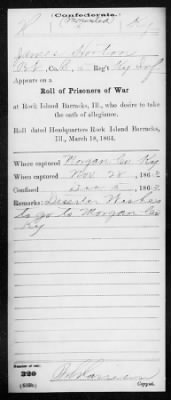 Confederate.
(Mounted)
H Ky.
James Horton
Co. , 5 Reg't Ky Inf
Appears on a
Roll of Prisoners of War
at Rock Island Barracks, Ill., who desire to take
the oath of allegiance.
Roll dated Headquarters Rock Island Barracks,
Ill., March 18, 1864.
Where captured Morgan Co Ky
When captured Nov 28, 186
Confined 5, 186
Remarks: Deserter Wishes
to go to Morgan Co
Ky
Number of roll:
320
(639b) Copyist.